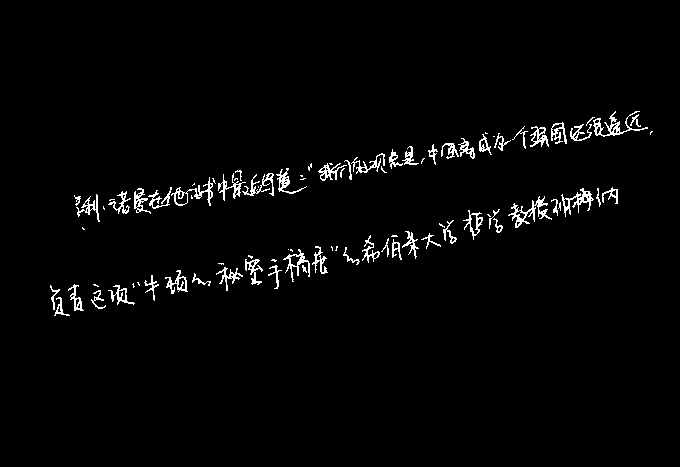 利·诺曼在他的书中最后写道："我们的观点是,中国离成为一个强国还很遥远,
负责这项"牛顿的秘密手稿展"的希伯来大学哲学教授称梅纳